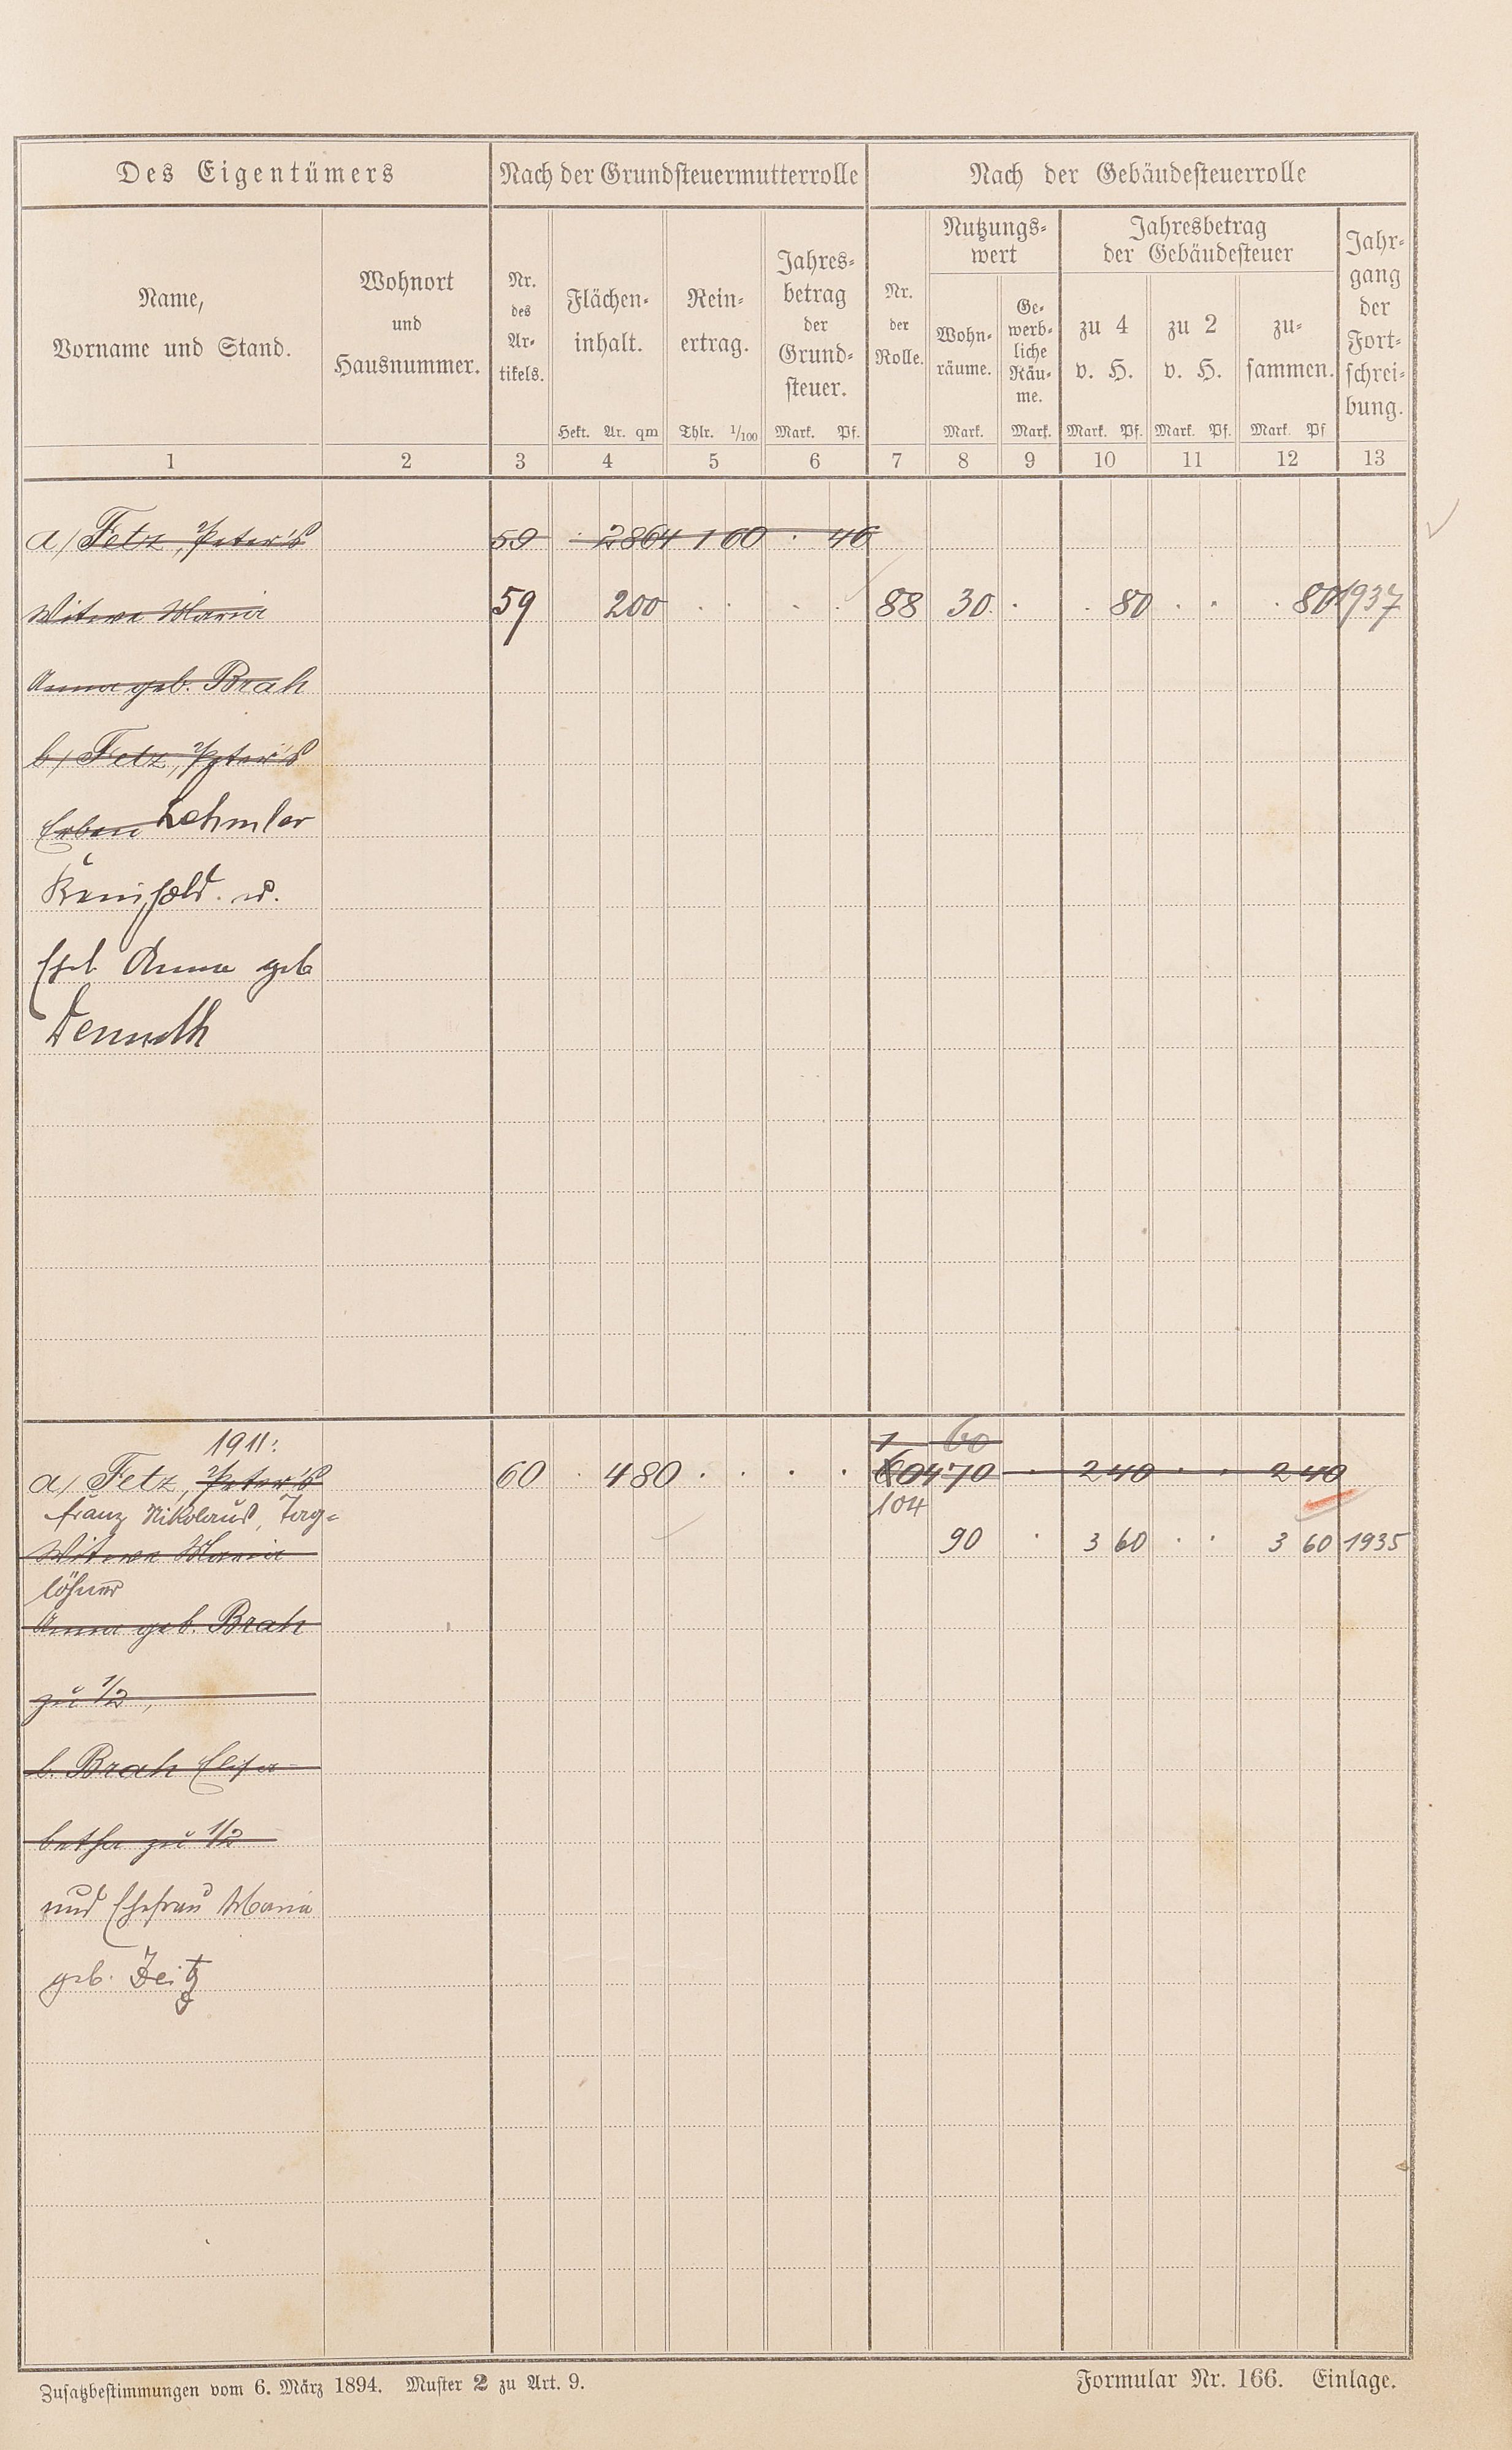 Des Eigentümers
Nach der Grundsteuermutterrolle
Nach der Gebäudesteuerrolle
Name,
Vorname und Stand.
Wohnort
und
Hausnummer.
Nr.
des
Ar-
tikels.
Flächen-
inhalt.
Hekt. Ar. qm
Rein-
ertrag.
Thlr. 1/100
Jahres-
betrag
der
Grund-
steuer.
Mark. Pf.
Nr.
der
Rolle.
Nutzungs-
wert
Wohn-
räume.
Mark.
Ge-
werb-
liche
Räu-
me.
Mark.
Jahresbetrag
der Gebäudesteuer
zu 4
v. H.
Mark. Pf.
zu 2
v. H.
Mark. Pf.
zu-
sammen.
Mark. Pf
Jahr-
gang
der
Fort-
schrei-
bung.
1 2 3 4 5 6 7 8 9 10 11 12 13
a/ Fetz, Peter's 59 . 2864 1 60 . 46
Witwe Maria 59 200 . . . . 88 30 . . 80 . . . 80 1937
Anna geb. Brah
b/ Fetz, Peter's
Erben Lehmler
Reinhold. u.
Ehel. Anna geb
1911:
1 60
a/ Fetz, Peter's 60 . 480 . . . . 60470 . 2 40 . . 2 40
Franz Nikolaus, Tag= 104
Witwe Maria 90 . 3 60 . . 3 60 1935
löhner
Anna geb. Brah
zu 1/2,
b. Brah Elisa-
betha zu 1/2
und Ehefrau Maria
geb. Zeitz
Zusatzbestimmungen vom 6. März 1894. Muster 2 zu Art. 9.
Formular Nr. 166. Einlage.